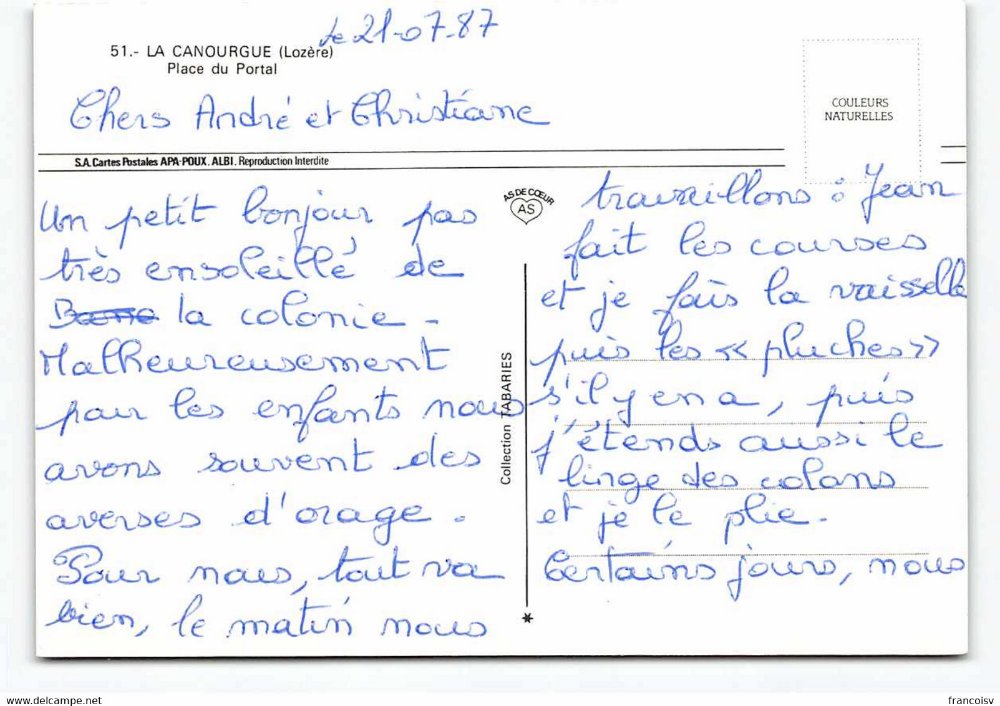 le 21-07-87
51.- LA CANOURGUE (Lozère)
Place du Portal
COULEURS
NATURELLES
Chers André et Christiane
S.A. Cartes Postales APA-POUX. ALBI. Reproduction Interdite
AS DE CŒUR
AS
Un petit bonjour pas
très ensoleillé de
la colonie -
Malheureusement
pour les enfants nous
avons souvent des
averses d'orage.
Pour nous, tout va
bien, le matin nous
Collection TABARIES
travaillons : Jean
fait les courses
et je fais la vaisselle
puis les « pluches »
s'il y en a, puis
j'étends aussi le
linge des colons
et je le plie.
Certains jours, nous
for sale on www.delcampe.net
francoisv